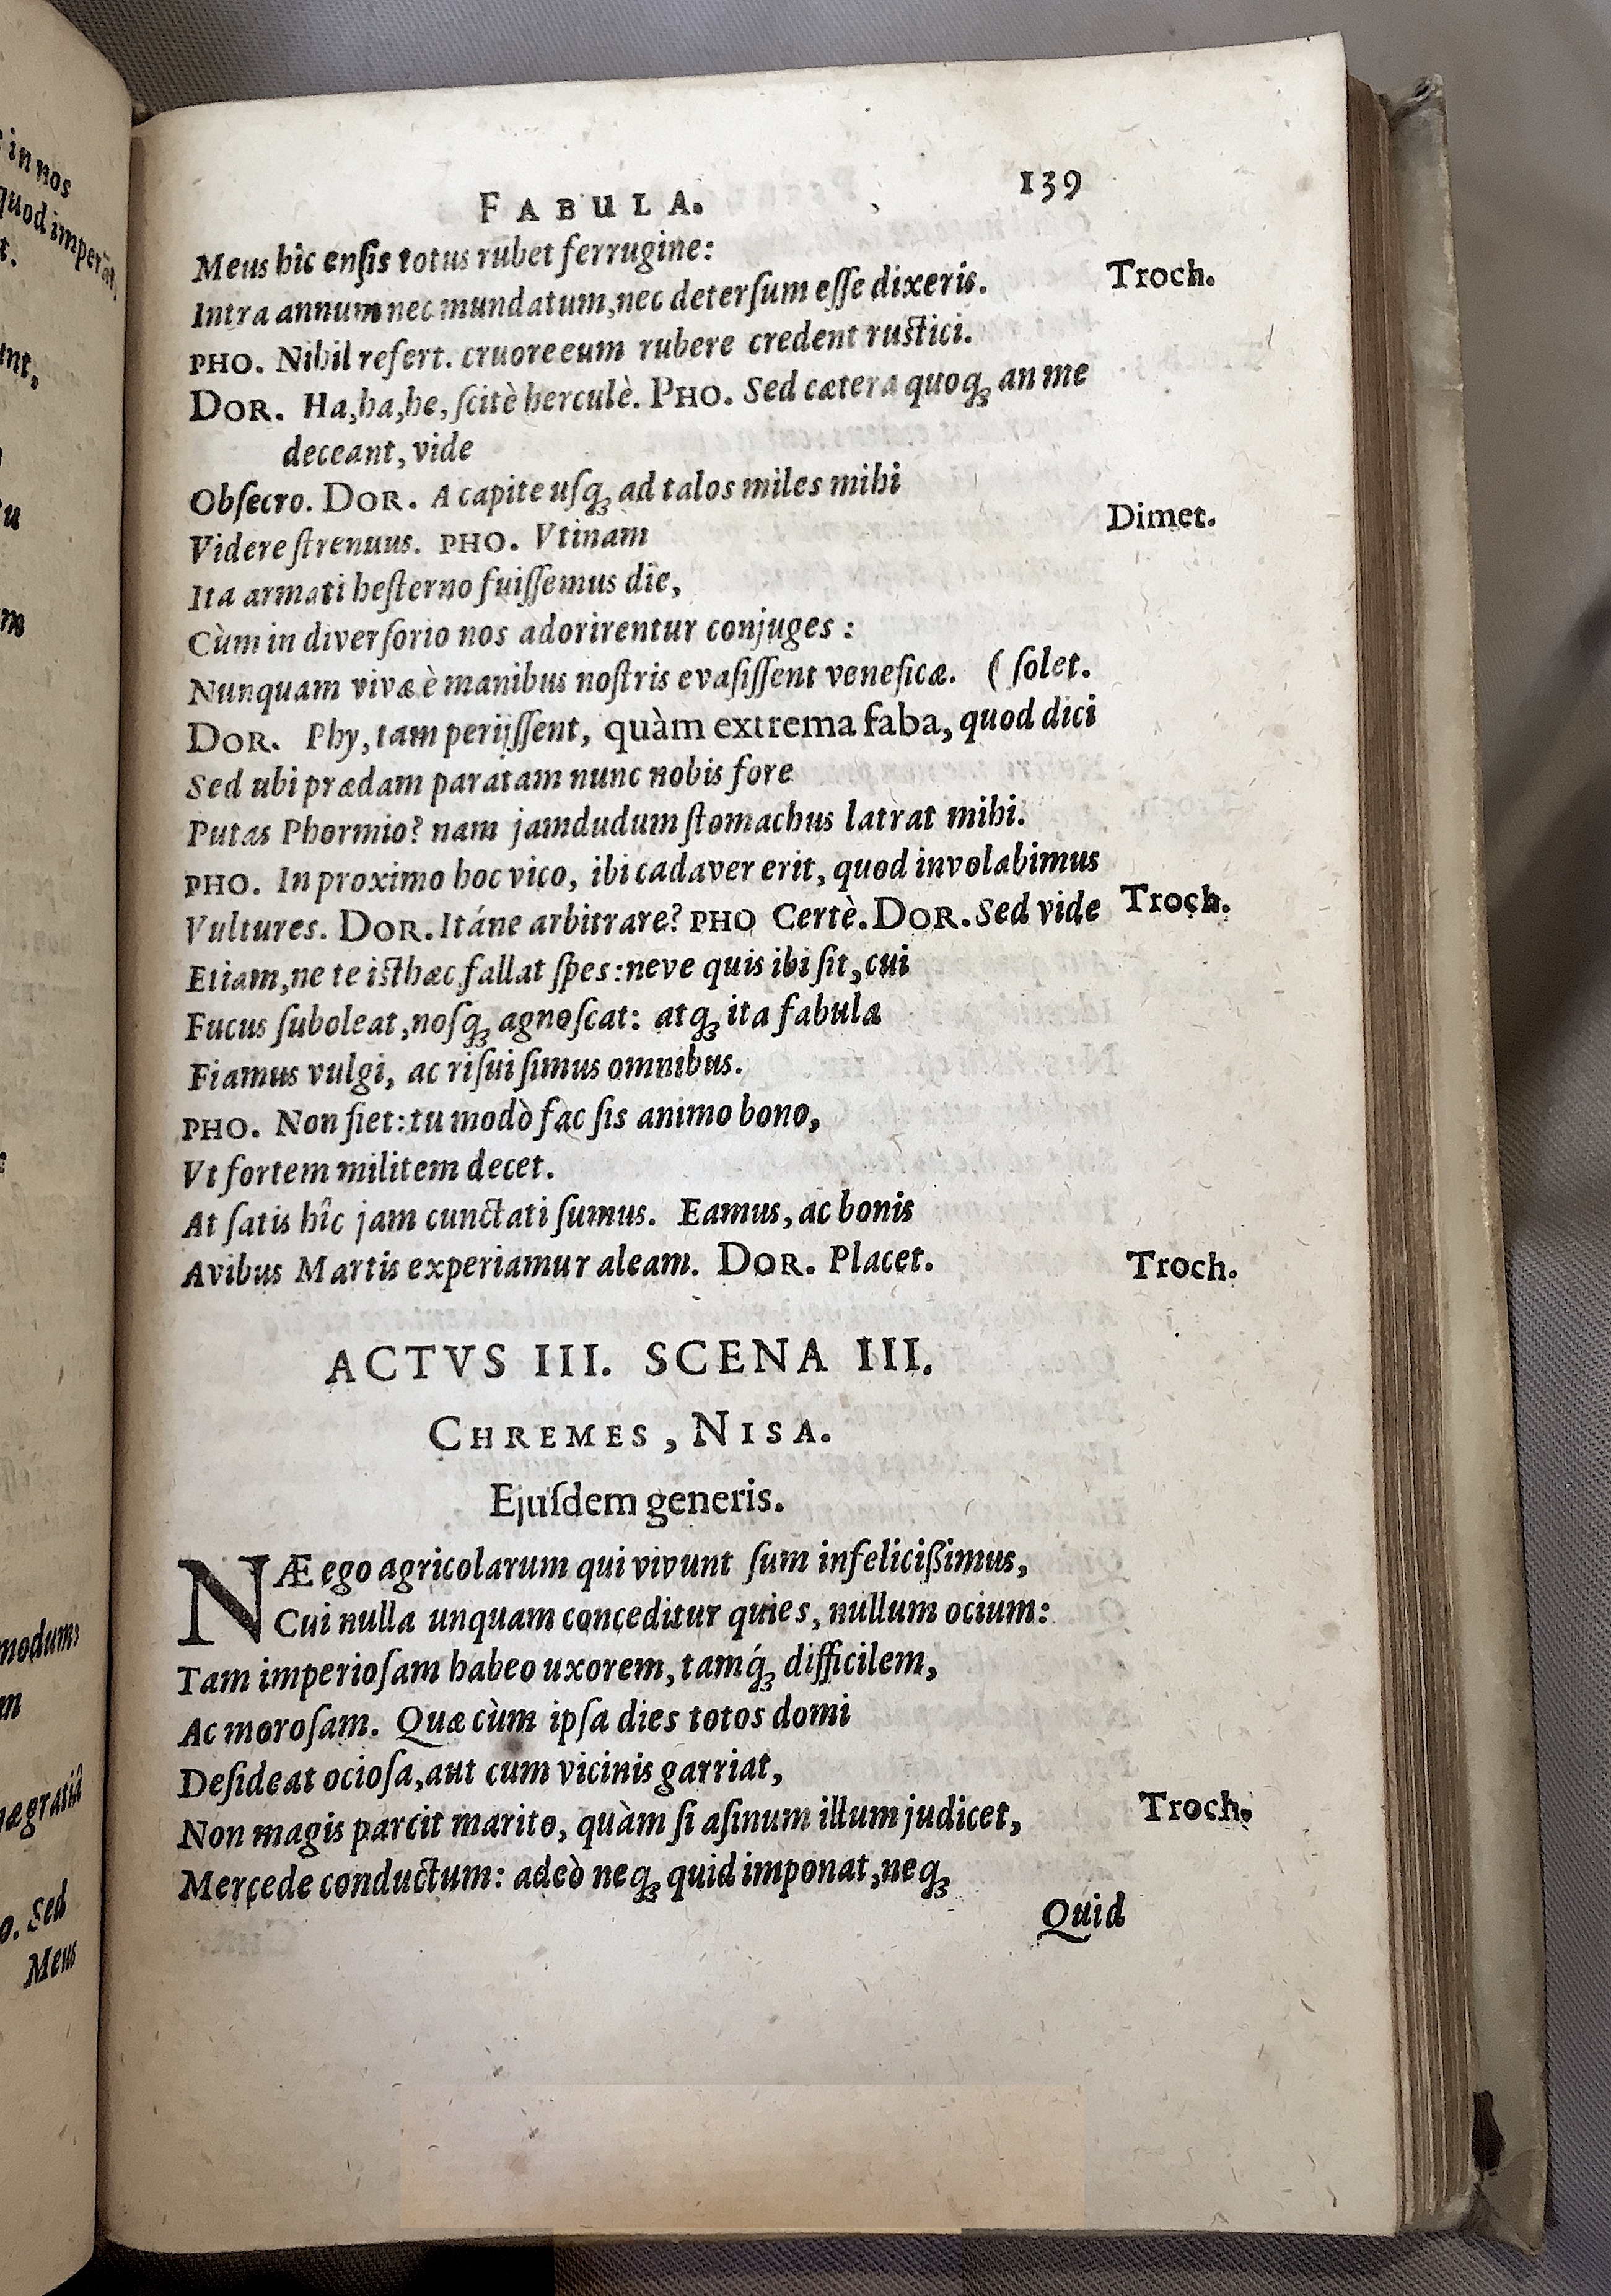 in nos
quod imperāt,
t.
unt.
Pu
m
modum:
m
næ gratiâ
o. Sed
Meus
FABULA. 139
Meus hîc enſis totus rubet ferrugine:
Intra annum nec mundatum, nec deterſum eſſe dixeris. Troch.
PHO. Nihil refert. cruore eum rubere credent ruſtici.
DOR. Ha, ha, he, ſcitè herculè. PHO. Sed cætera quoq; an me
deceant, vide
Obſecro. DOR. A capite uſq; ad talos miles mihi
Videre ſtrenuus. PHO. Vtinam Dimet.
Ita armati heſterno fuiſſemus die,
Cùm in diverſorio nos adorirentur conjuges :
Nunquam vivæ è manibus noſtris evaſiſſent veneficæ. ( ſolet.
DOR. Phy, tam perijſſent, quàm extrema faba, quod dici
Sed ubi prædam paratam nunc nobis fore
Putas Phormio? nam jamdudum ſtomachus latrat mihi.
PHO. In proximo hoc vico, ibi cadaver erit, quod involabimus
Vultures. DOR. Itáne arbitrare? PHO Certè. DOR. Sed vide Troch.
Etiam, ne te iſthæc fallat ſpes: neve quis ibi ſit, cui
Fucus ſuboleat, noſq; agnoſcat: atq; ita fabula
Fiamus vulgi, ac riſui ſimus omnibus.
PHO. Non fiet: tu modò fac ſis animo bono,
Vt fortem militem decet.
At ſatis hîc jam cunctati ſumus. Eamus, ac bonis
Avibus Martis experiamur aleam. DOR. Placet. Troch.
ACTVS III. SCENA III.
CHREMES, NISA.
Ejuſdem generis.
NÆ ego agricolarum qui vivunt ſum infelicißimus,
Cui nulla unquam conceditur quies, nullum ocium:
Tam imperioſam habeo uxorem, tamq́; difficilem,
Ac moroſam. Quæ cùm ipſa dies totos domi
Deſideat ocioſa, aut cum vicinis garriat,
Non magis parcit marito, quàm ſi aſinum illum judicet, Troch.
Mercede conductum: adeò neq; quid imponat, neq;
Quid